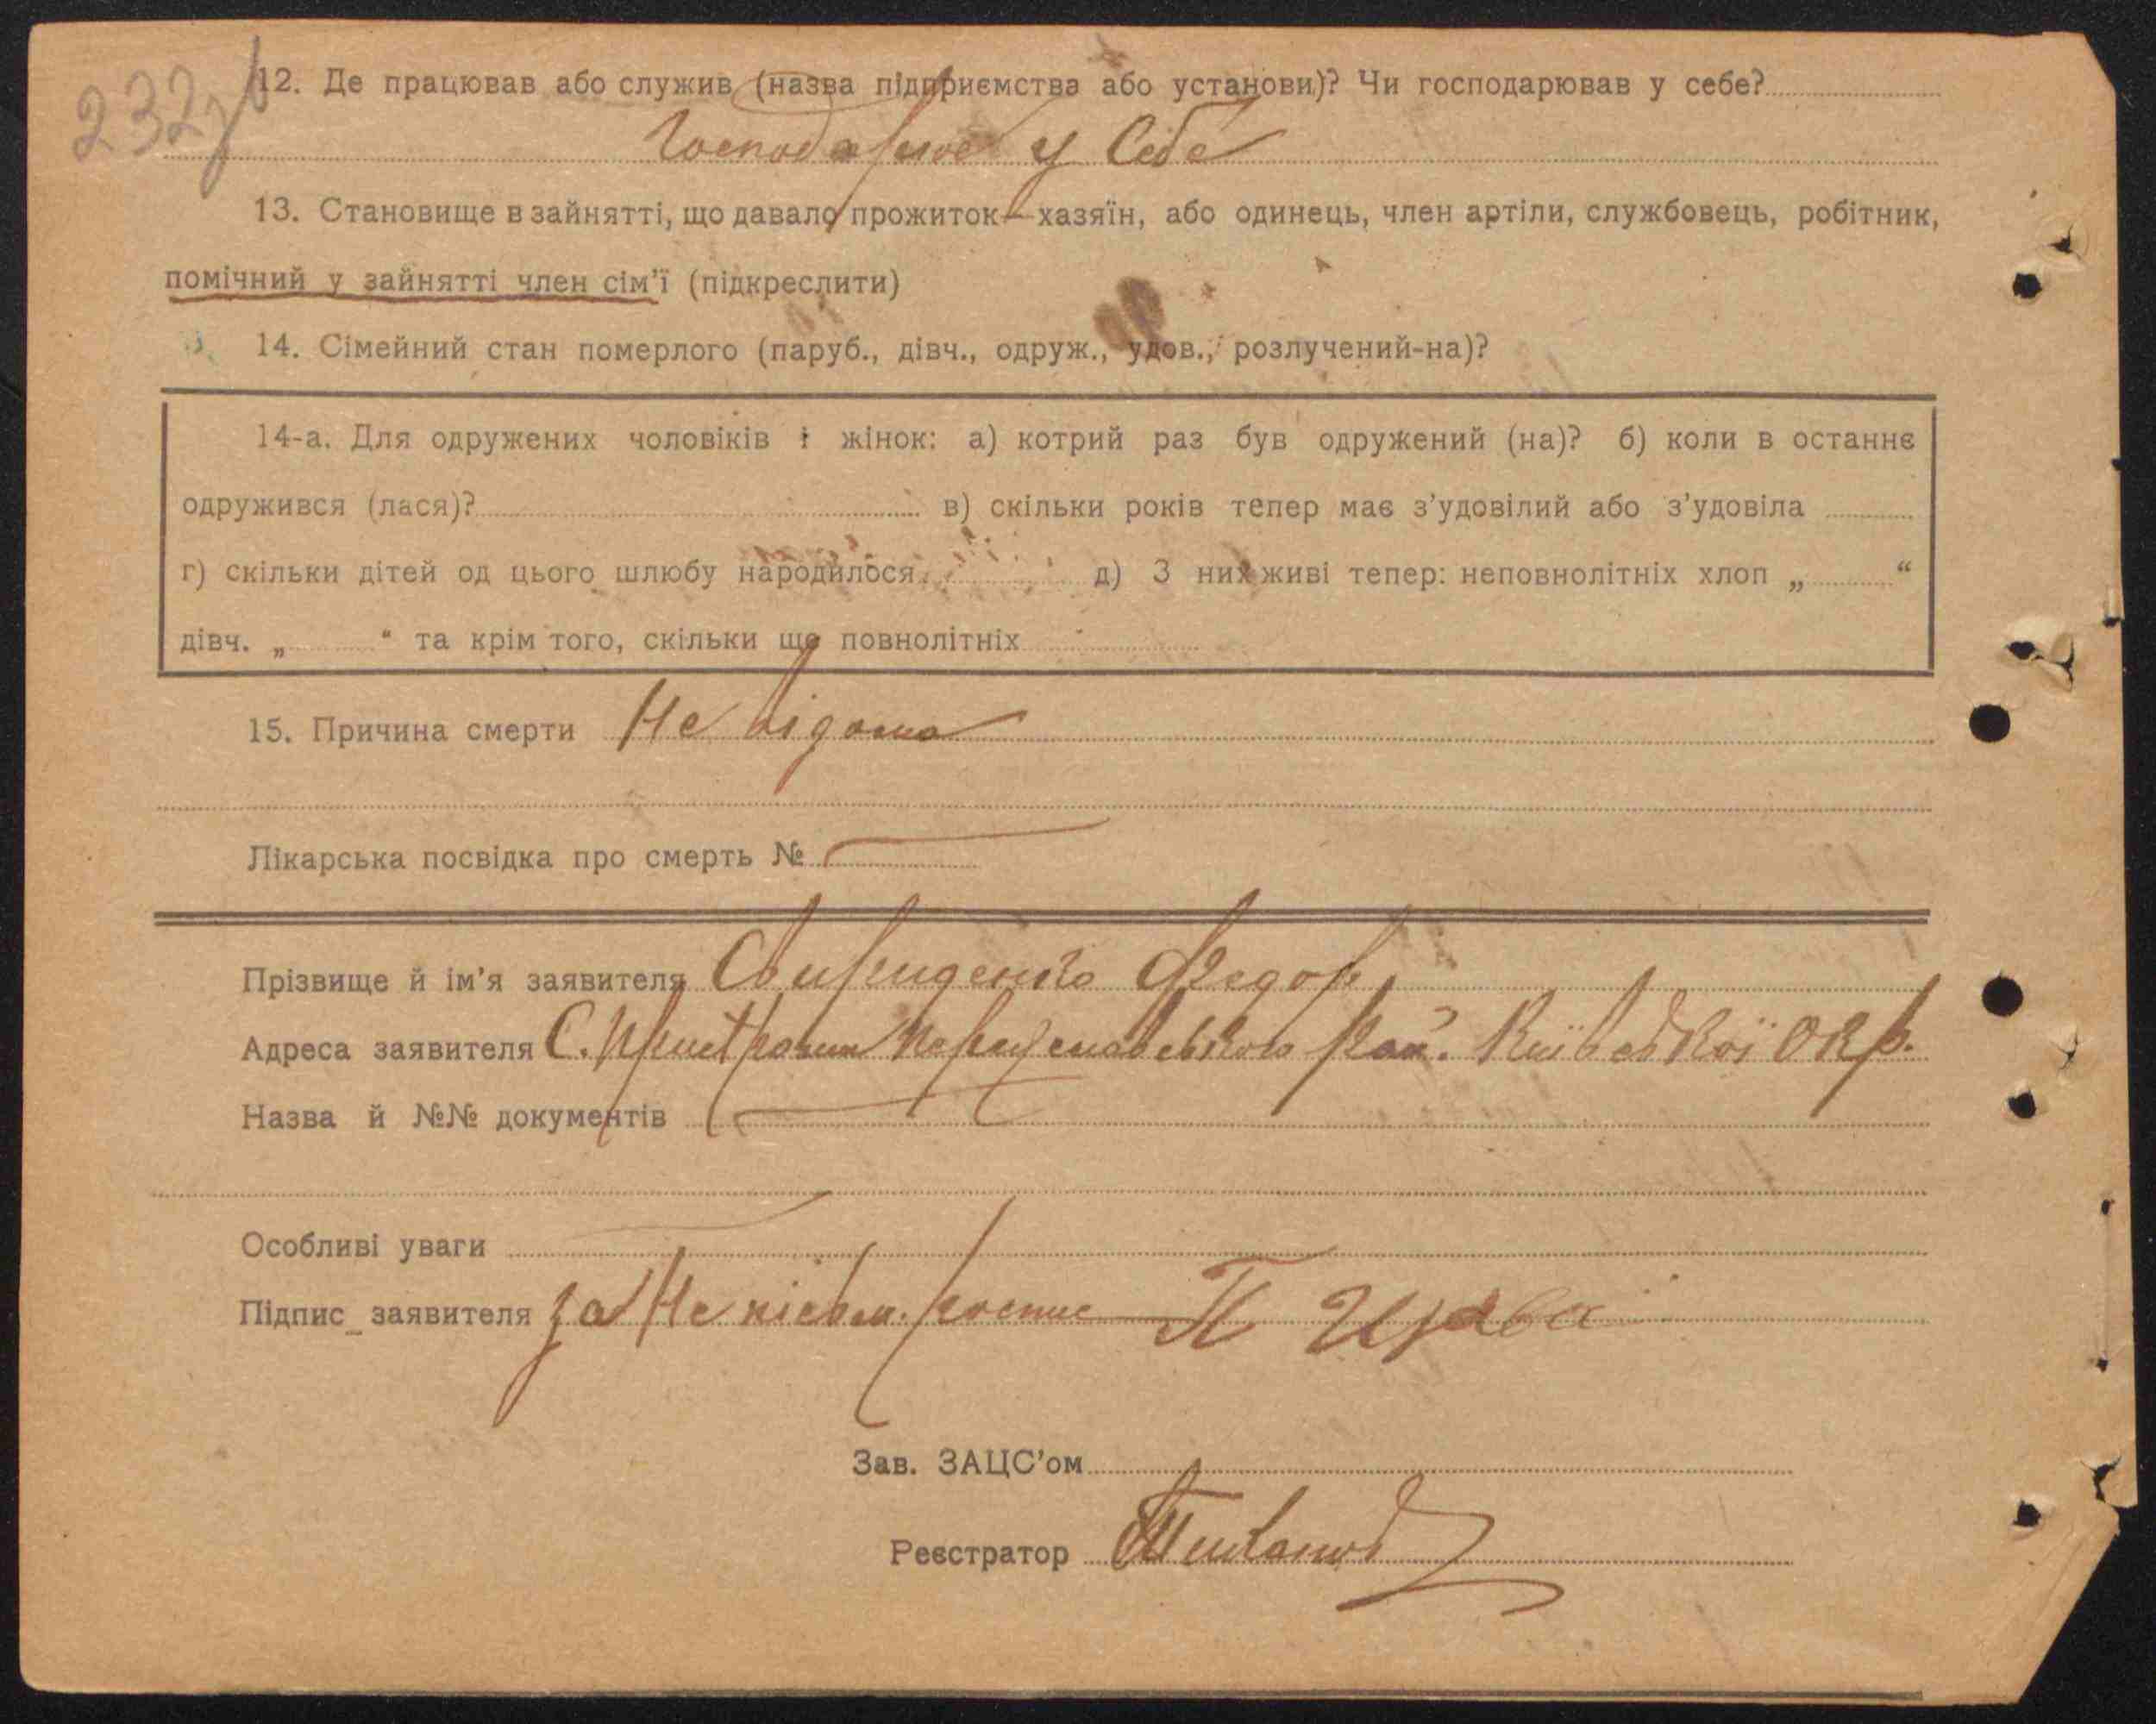 232
12. Де працював або служив (назва підприємства або установи)? Чи господарював у себе?
Господарює у Себе
13. Становище в зайнятті, що давало прожиток — хазяїн, або одинець, член артіли, службовець, робітник,
помічний у зайнятті член сім'ї (підкреслити)
14. Сімейний стан померлого (паруб., дівч., одруж., удов., розлучений-на)?
14-а. Для одружених чоловіків і жінок: а) котрий раз був одружений (на)? б) коли в останнє
одружився (лася)? в) скільки років тепер має з'удовілий або з'удовіла
г) скільки дітей од цього шлюбу народилося д) З них живі тепер: неповнолітніх хлоп „ “
дівч. „ “ та крім того, скільки ще повнолітніх
15. Причина смерти Не відома
Лікарська посвідка про смерть №
Прізвище й ім'я заявителя Свириденко Федор
Адреса заявителя С. Пристроми Переяславського Рай. Київської Окр.
Назва й №№ документів
Особливі уваги
Підпис заявителя за Не письм. роспис П
Зав. ЗАЦС'ом
Реєстратор